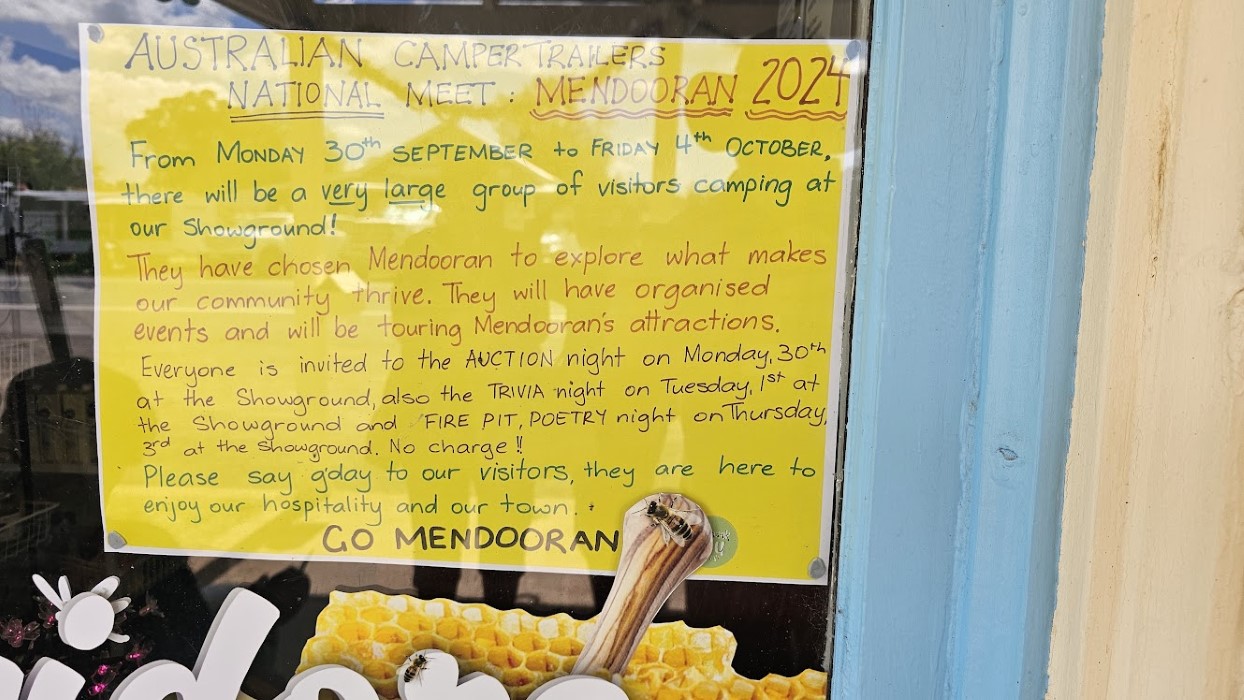 AUSTRALIAN CAMPER TRAILERS
NATIONAL MEET: MENDOORAN 2024
From MONDAY 30th SEPTEMBER to FRIDAY 4th OCTOBER,
there will be a very large group of visitors camping at
our Showground!
They have chosen Mendooran to explore what makes
our community thrive. They will have organised
events and will be touring Mendooran's attractions.
Everyone is invited to the AUCTION night on Monday, 30th
at the Showground, also the TRIVIA night on Tuesday, 1st at
the Showground and FIRE PIT, POETRY night on Thursday,
3rd at the Showground. No charge!!
Please say g'day to our visitors, they are here to
enjoy our hospitality and our town.
GO MENDOORAN